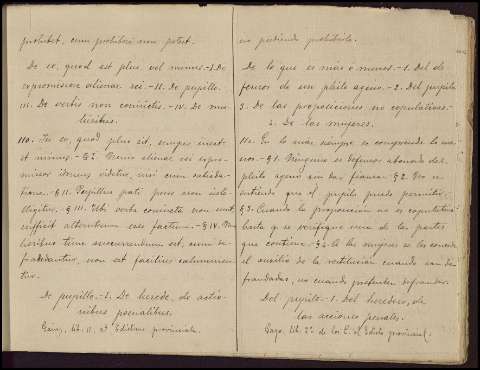 prohibet, cum prohibere non potest.
De eo, quod est plus vel minus.-I. De
expromissione alienae rei.-II. De pupillo.-
III. De verbis non coniunctis.-IV. De mu-
lieribus.
110. In eo, quod plus sit, semper inest
et minus.-§ I. Nemo alienae rei expro-
missor idoneus videtur, nisi cum satisda-
tione.-§ II. Pupillus pati posse non inte-
lligitur.-§ III. Ubi verba coniuncta non sunt,
sufficit alterutrum esse factum.-§ IV. Mu-
lieribus tunc succurrendum est, cum de-
fraudantur, non ut facilius calumnien-
tur.
De pupillo.-I. De herede, de actio-
nibus poenalibus.
Gaius, lib. II. ad Edictum provinciale.
no pudiendo prohibirlo.
De lo que es más ó menos.-1. Del de-
fensor de un pleito ageno.-2. Del pupilo.
3. De las proposiciones no copulativas.-
4. De las mugeres.
110. En lo mas siempre se comprende lo me-
nos.-§1. Ninguno es defensor abonado del
pleito ageno sin dar fianza. §2. No se
entiende que el pupilo puede permitir.
§3. Cuando la proposicion no es copulativa
basta que se verifique una de las partes
que contiene.-§4. A las mugeres se les concede
el auxilio de la restitucion cuando son de-
fraudadas, no cuando pretenden defraudar.
Del pupilo.-1. Del heredero, de
las acciones penales.
Gayo, lib. 2º de los C. al Edicto provincial.